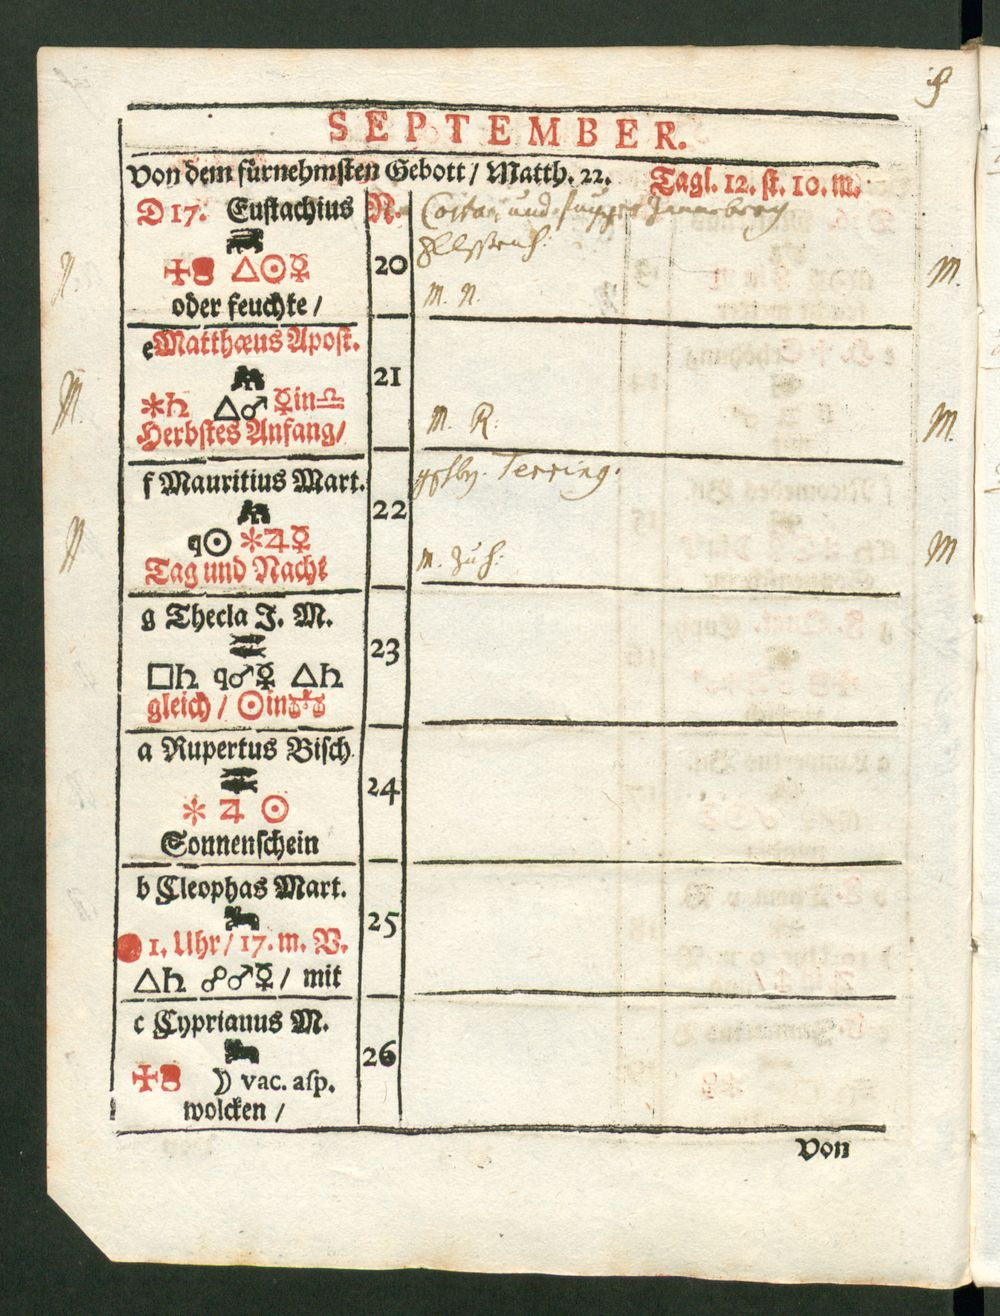 SEPTEMBER.
Von dem fürnehmsten Gebott / Matth. 22. Tagl. 12. st. 10. m.
D 17. Eustachius N.
20
△☉☿
oder feuchte /
M. N.
M.
e Matthæus Apost.
21
✱♄ △♂ ☿in♎
Herbstes Anfang/
M. R.
M.
f Mauritius Mart.
22
Terring.
q☉ ✱♃☿
Tag und Nacht
M
g Thecla J. M.
23
□♄ q♂☿ △♄
gleich / ☉in♎
a Rupertus Bisch.
24
✱ ♃ ☉
Sonnenschein
b Cleophas Mart.
25
1. Uhr / 17. m. V.
△♄ ☍♂☿ / mit
c Cyprianus M.
26
☽ vac. asp.
wolcken /
Von